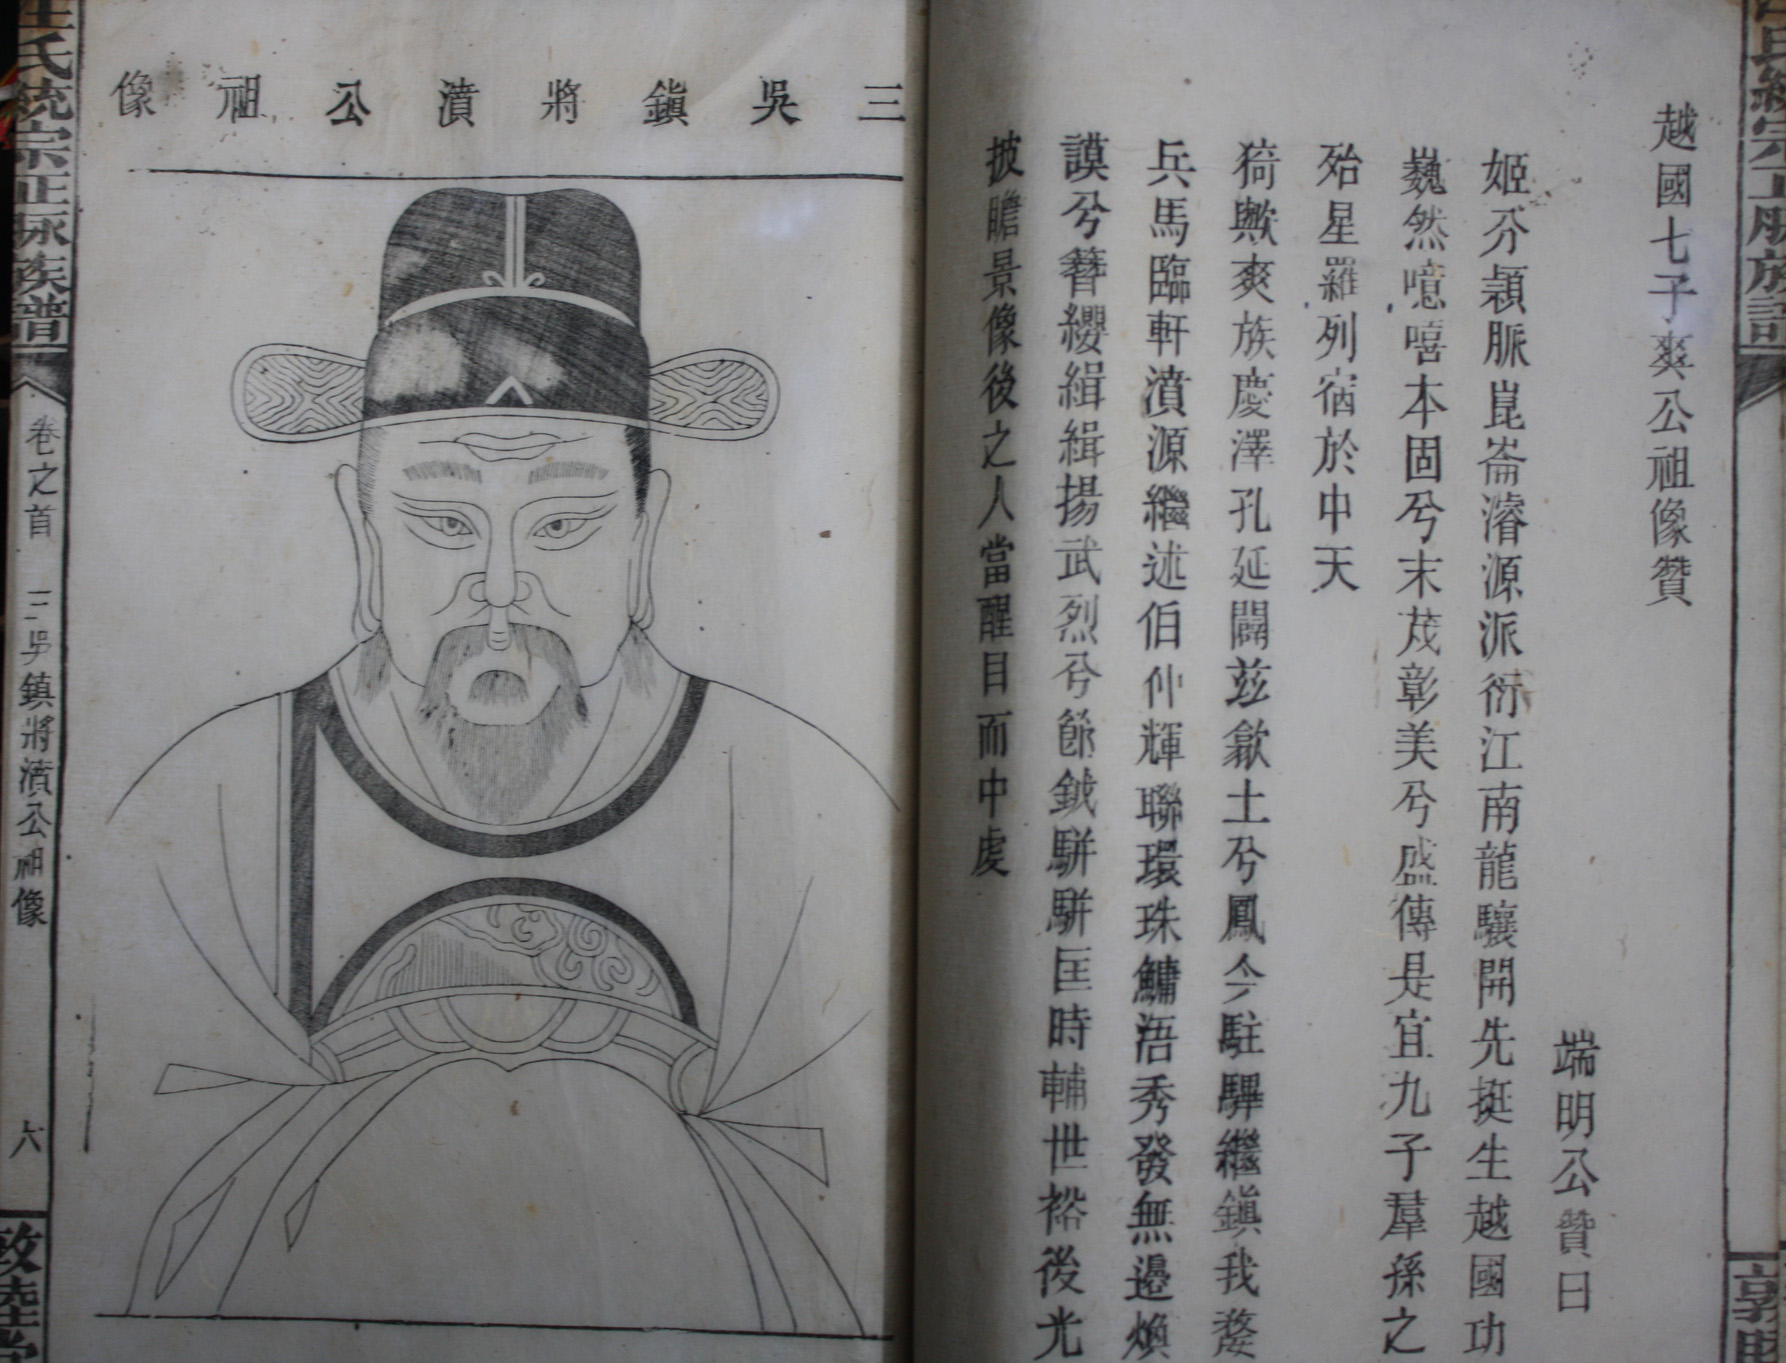 越國七子爽公祖像贊
端明公贊曰
姬分穎脈崑崙濬源派衍江南龍驤開先挺生越國功
巍然噫嘻本固兮末茂彰美兮盛傳是宜九子羣孫之
殆星羅列宿於中天
猗歟爽族慶澤孔延闢兹歙土兮鳳今駐驆繼鎮我婺
兵馬臨軒濆源繼述伯仲輝聯環珠鱅浯秀發無邊煥
謨兮簪纓緝緝揚武烈兮節鉞駢駢匡時輔世裕後光
披瞻景像後之人當醒目而中虔
三吳鎮將濆公祖像
汪氏統宗正脉族譜
卷之首
三吳鎮將濆公祖像
六
敦睦堂